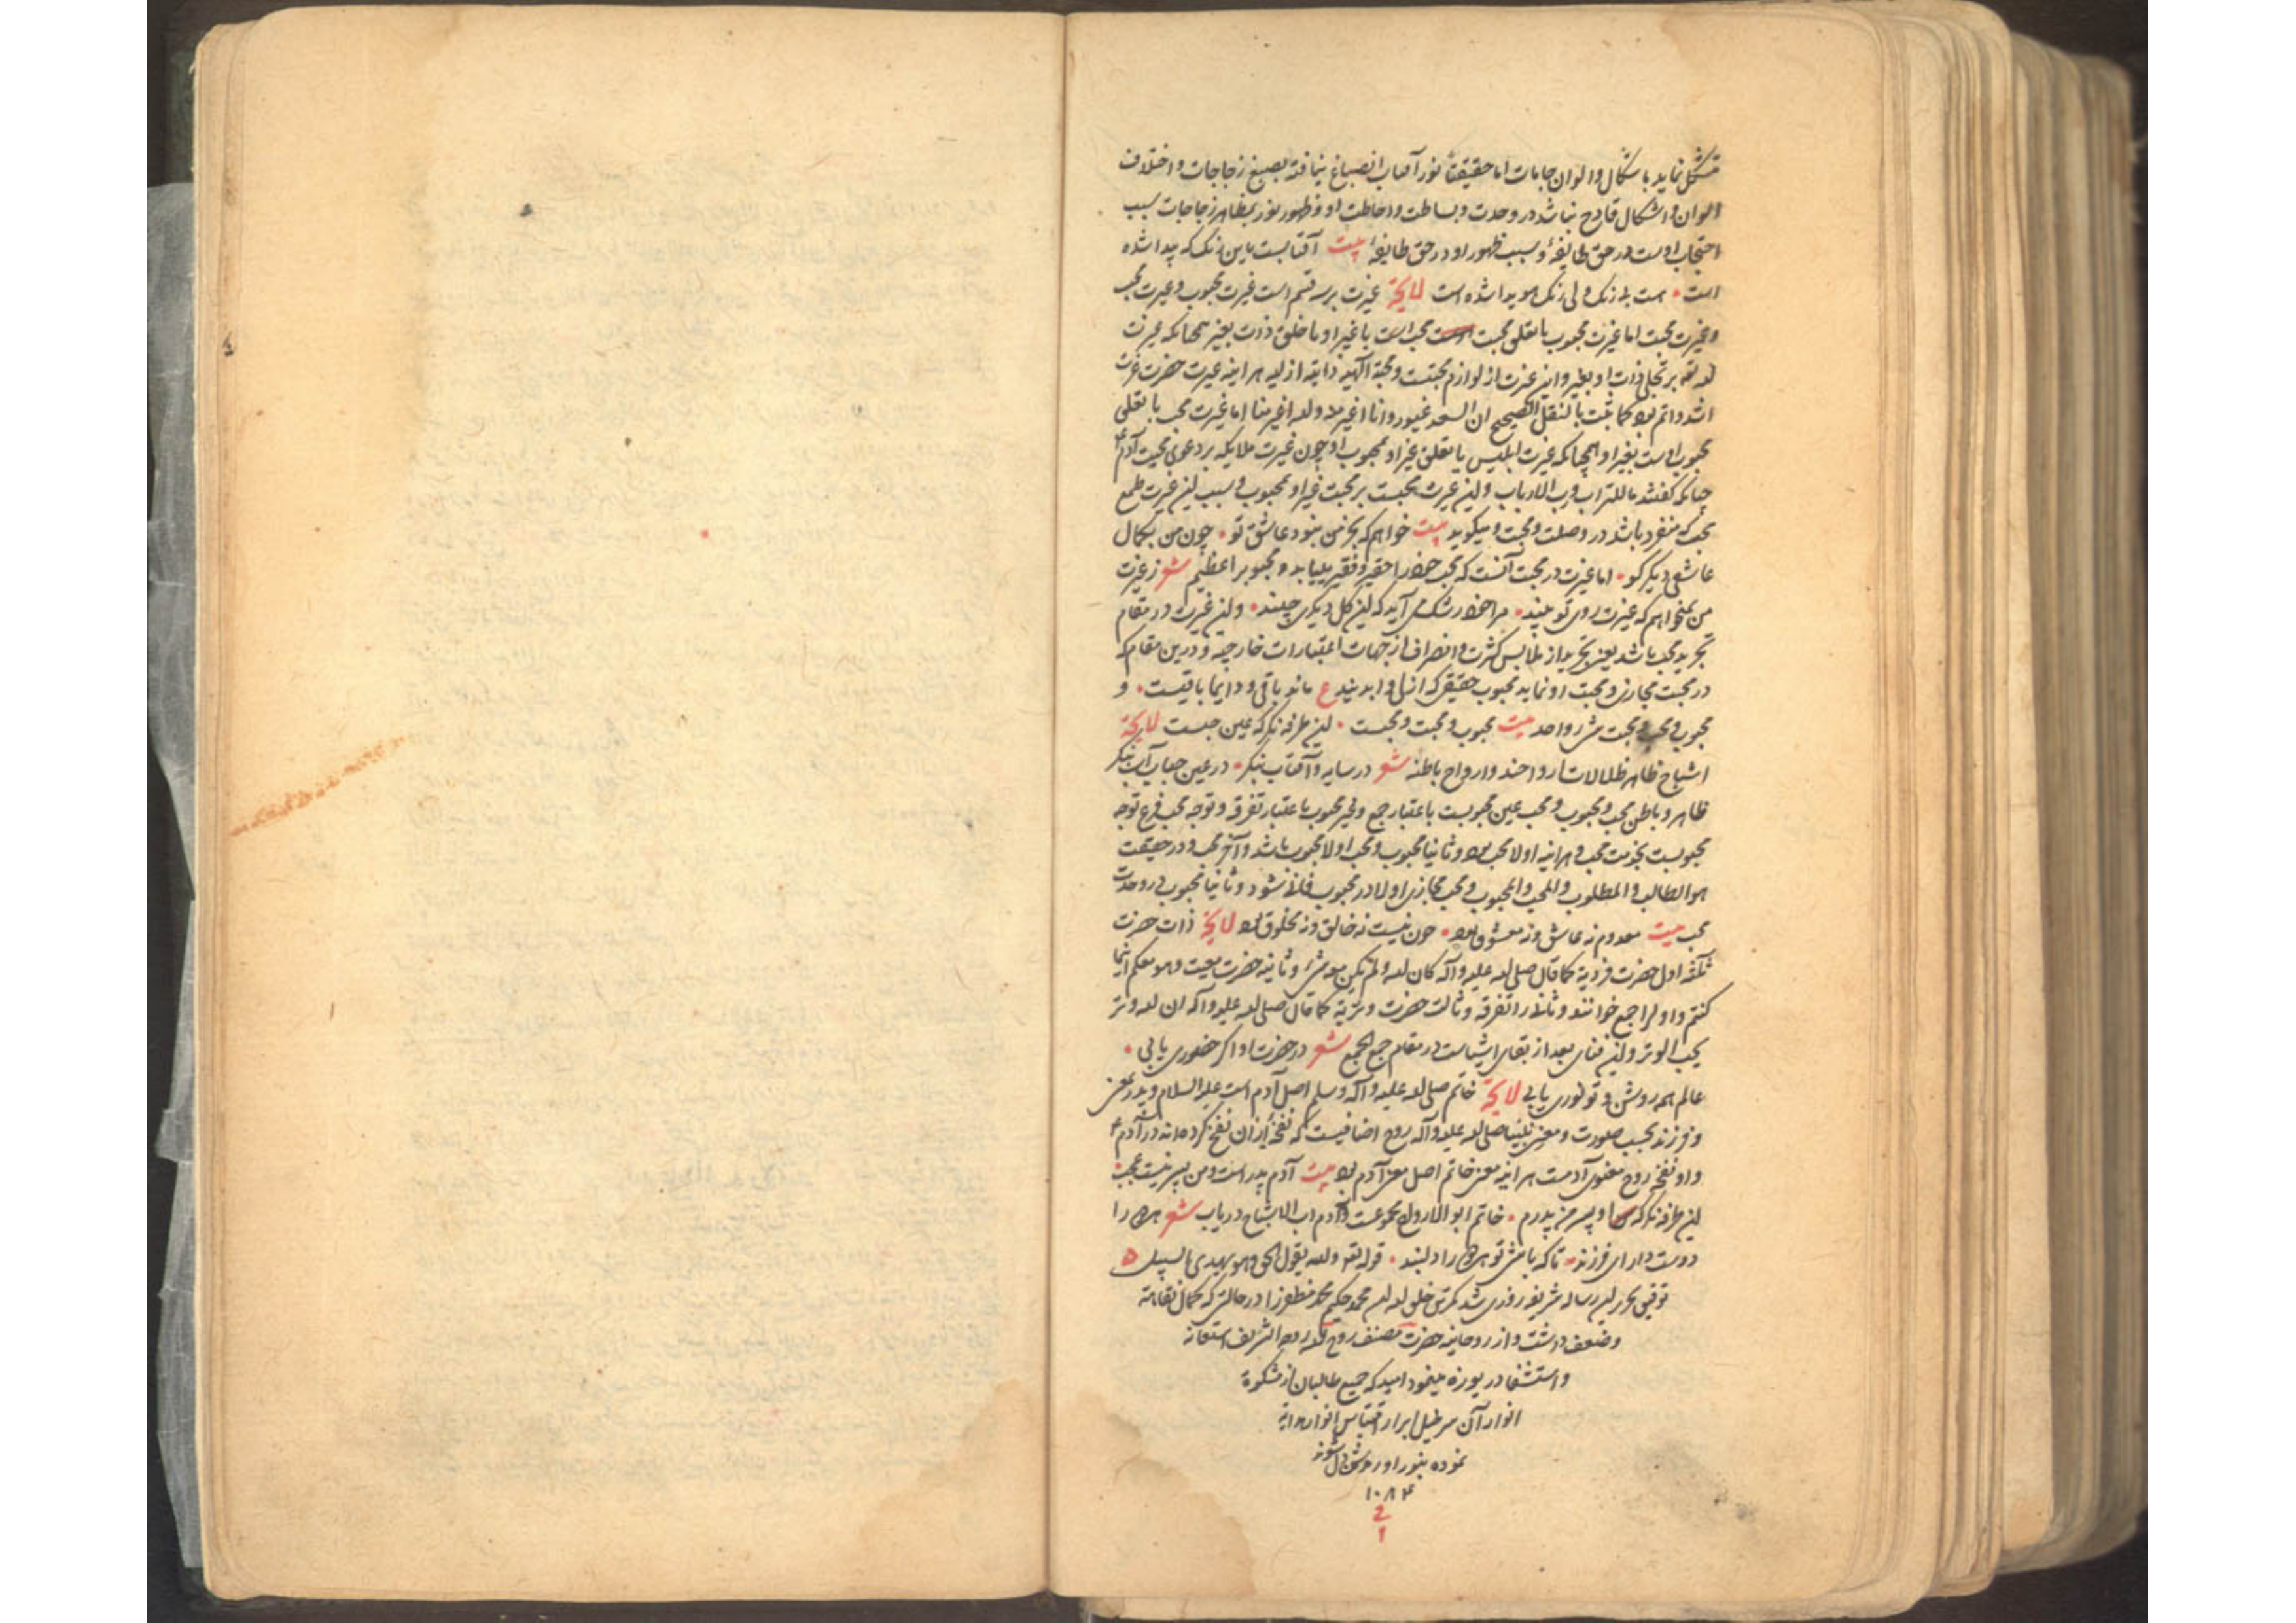 متشکل نماید باشکال و الوان جامات اما حقیقة نور آفتاب انصباغ نیافته بصبغ زجاجات و اختلاف
الوان و اشکال قادح نباشد در وحدت و بساطت و احاطت او و ظهور نور بمظاهر زجاجات سبب
احتجاب اوست در حق طایفهٔ و سبب ظهور او در حق طایفهٔ بیت آفتابست باین رنگ که پیدا شده
است هست بی رنگ ولی رنگ هویدا شده است لایحة غیرت بر سه قسم است غیرت محبوب و غیرت محب
و غیرت محبت اما غیرت محبوب با تعلق محبت محب است با غیر او
الله تعه بر تجلی ذات او بغیر و این غیرت از لوازم محبتست و محبة الهیه ذاتیه ازلیه هر آینه غیرت حضرت عزت
اشد و اتم بود کما ثبت بالنقل الصحیح ان السعد غیور وانا اغیر منه والله اغیر منا اما غیرت محب با تعلق
محبوب اوست بغیر او همچنانکه غیرت ابلیس با تعلق غیر او بمحبوب او چون غیرت ملایکه بر دعوی محبت آدم
چنانکه گفتند ما للتراب و رب الارباب و این غیرت محبست بر محبت غیر او محبوب و سبب این غیرت طمع
محب که منفرد باشد در وصلت و محبت و میگوید بیت خواهم که بجز من نبود عاشق تو چون من بکمال
عاشقی دیگر کو اما غیرت در محبت آنست که محب خود را حقیر و فقیر بیابد و محبوب را عظیم شعر ز غیرت
من نمیخواهم که غیرت روی تو بیند مرا خود رشک می آید که این گل دیگری چیند و این غیرت در مقام
تجرید محب باشد یعنی تجرید از ملابس کثرت و انصراف از جهات اعتبارات خارجیه و درین مقام که
در محبت مجازی و محبت او نماید محبوب حقیقی که ازلی و ابدی ع ماند باقی و دایما باقیست و
محبوب و محب و محبت شیء واحد بیت محبوب و محبت و محبست این طرفه نگر که عین جبست لایحة
اشباح ظاهر ظلالات ارواحند و ارواح باطنه شعر در سایه و آفتاب بنگر در عین حباب آب بنگر
ظاهر و باطن محب و محبوب و محب عین محبوبست باعتبار جمع و غیر محبوب باعتبار تفرقه و توجه محب فرع توجه
محبوبست بخدمت محب و هر آینه اولا محب بود و ثانیا محبوب و محب اولا محبوب باشد و آخر محب و در حقیقت
هو الطالب و المطلوب و المحب و المحبوب و محب مجازی اولا در محبوب فانی شود و ثانیا محبوب در وحدت
محب بیت معدوم نه عاشق و نه معشوق بود چون نیست نه خالق و نه مخلوق بود لایحة ذات حضرت
ثلثه اول حضرت فردیة کما قال صلی الله علیه وآله کان الله ولم یکن معه شیء و ثانیه حضرت معیت وهو معکم اینما
کنتم و اول را جمع خوانند و ثانی را تفرقه و ثالث حضرت وتریة کما قال صلی الله علیه وآله ان الله وتر
یحب الوتر و این فنای بعد از بقای اشیاست در مقام جمع الجمع شعر در حضرت او اگر حضوری یابی
عالم همه روشن و تو نوری یابی لایحة خاتم صلی الله علیه وآله وسلم اصل آدم است علیه السلام و پدر معنی
و فرزند بحسب صورت و معنی نبینا صلی الله علیه وآله روح اضافیست که نفخهٔ از آن نفخ کرده اند در آدم
و او نفخ روح معنوی آدمست هر آینه معنی خاتم اصل معنی آدم بود بیت آدم پدر است و من پسر نیست عجب
این طرفه نگر که او پسر من پدرم خاتم ابو الارواح مجموعست و آدم اب الاشباح دریاب شعر همه را
دوست دار ای فرزند تا که باشی تو همه را دلبند قوله تعه والله یقول الحق وهو یهدی السبیل
توفیق تحریر این رساله شریفه روزی شد کمترین خلق الله ابن محمد حکیم محمد مظفر را در حالتی که کمال نقاهت
و ضعف داشت و از روحانیه حضرت مصنف روح الله روحه الشریف استعانه
و استشفا دریوزه مینمود امید که جمیع طالبان از مشکوة
انوار آن سرخیل ابرار اقتباس انوار هدایة
نموده بنور او روشن دل شوند
۱۰۸۴